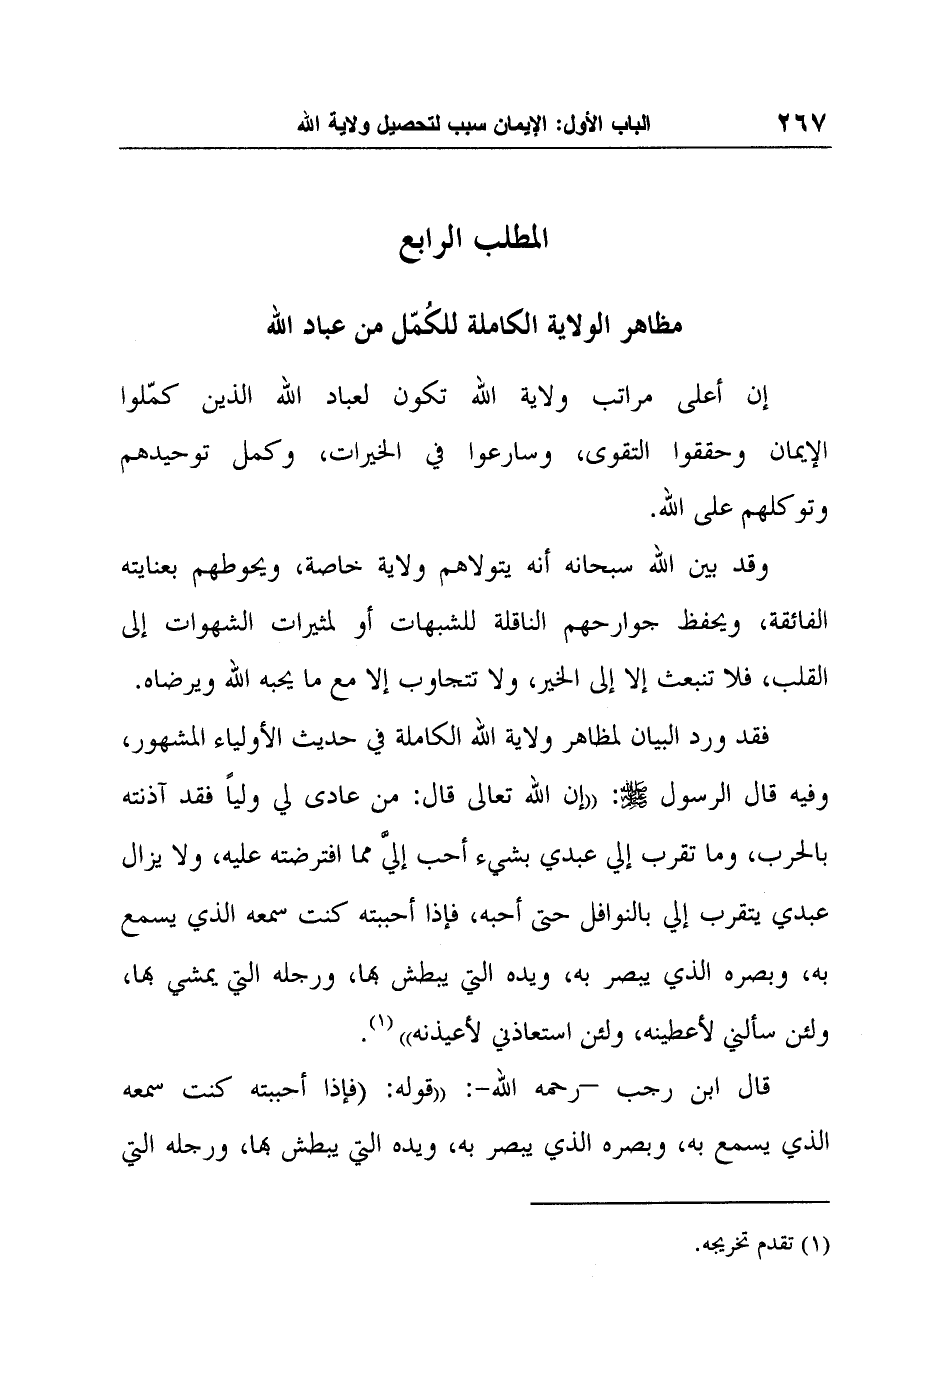 ٢٦٧ الباب الأول: الإيمان سبب لتحصيل ولاية الله
المطلب الرابع
مظاهر الولاية الكاملة للكُمّل من عباد الله
إن أعلى مراتب ولاية الله تكون لعباد الله الذين كمّلوا
الإيمان وحققوا التقوى، وسارعوا في الخيرات، وكمل توحيدهم
وتوكلهم على الله.
وقد بين الله سبحانه أنه يتولاهم ولاية خاصة، ويحوطهم بعنايته
الفائقة، ويحفظ جوارحهم الناقلة للشبهات أو لمثيرات الشهوات إلى
القلب، فلا تنبعث إلا إلى الخير، ولا تتجاوب إلا مع ما يحبه الله ويرضاه.
فقد ورد البيان لمظاهر ولاية الله الكاملة في حديث الأولياء المشهور،
وفيه قال الرسول ﷺ: ((إن الله تعالى قال: من عادى لي ولياً فقد آذنته
بالحرب، وما تقرب إلي عبدي بشيء أحب إليَّ مما افترضته عليه، ولا يزال
عبدي يتقرب إلي بالنوافل حتى أحبه، فإذا أحببته كنت سمعه الذي يسمع
به، وبصره الذي يبصر به، ويده التي يبطش بها، ورجله التي يمشي بها،
ولئن سألني لأعطينه، ولئن استعاذني لأعيذنه)) (١).
قال ابن رجب –رحمه الله-: ((قوله: (فإذا أحببته كنت سمعه
الذي يسمع به، وبصره الذي يبصر به، ويده التي يبطش بها، ورجله التي
(١) تقدم تخريجه.